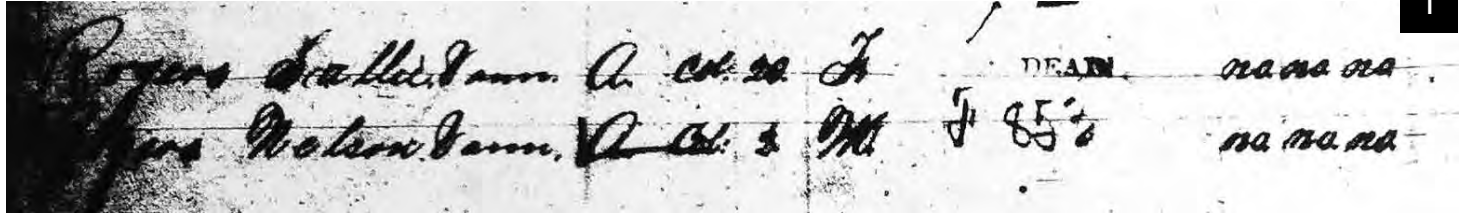 Rogers Sallie. Vann. A. Col. 20. F DEAD. na na na
Nelson. Vann. A Col. 3 M F 85 na na na